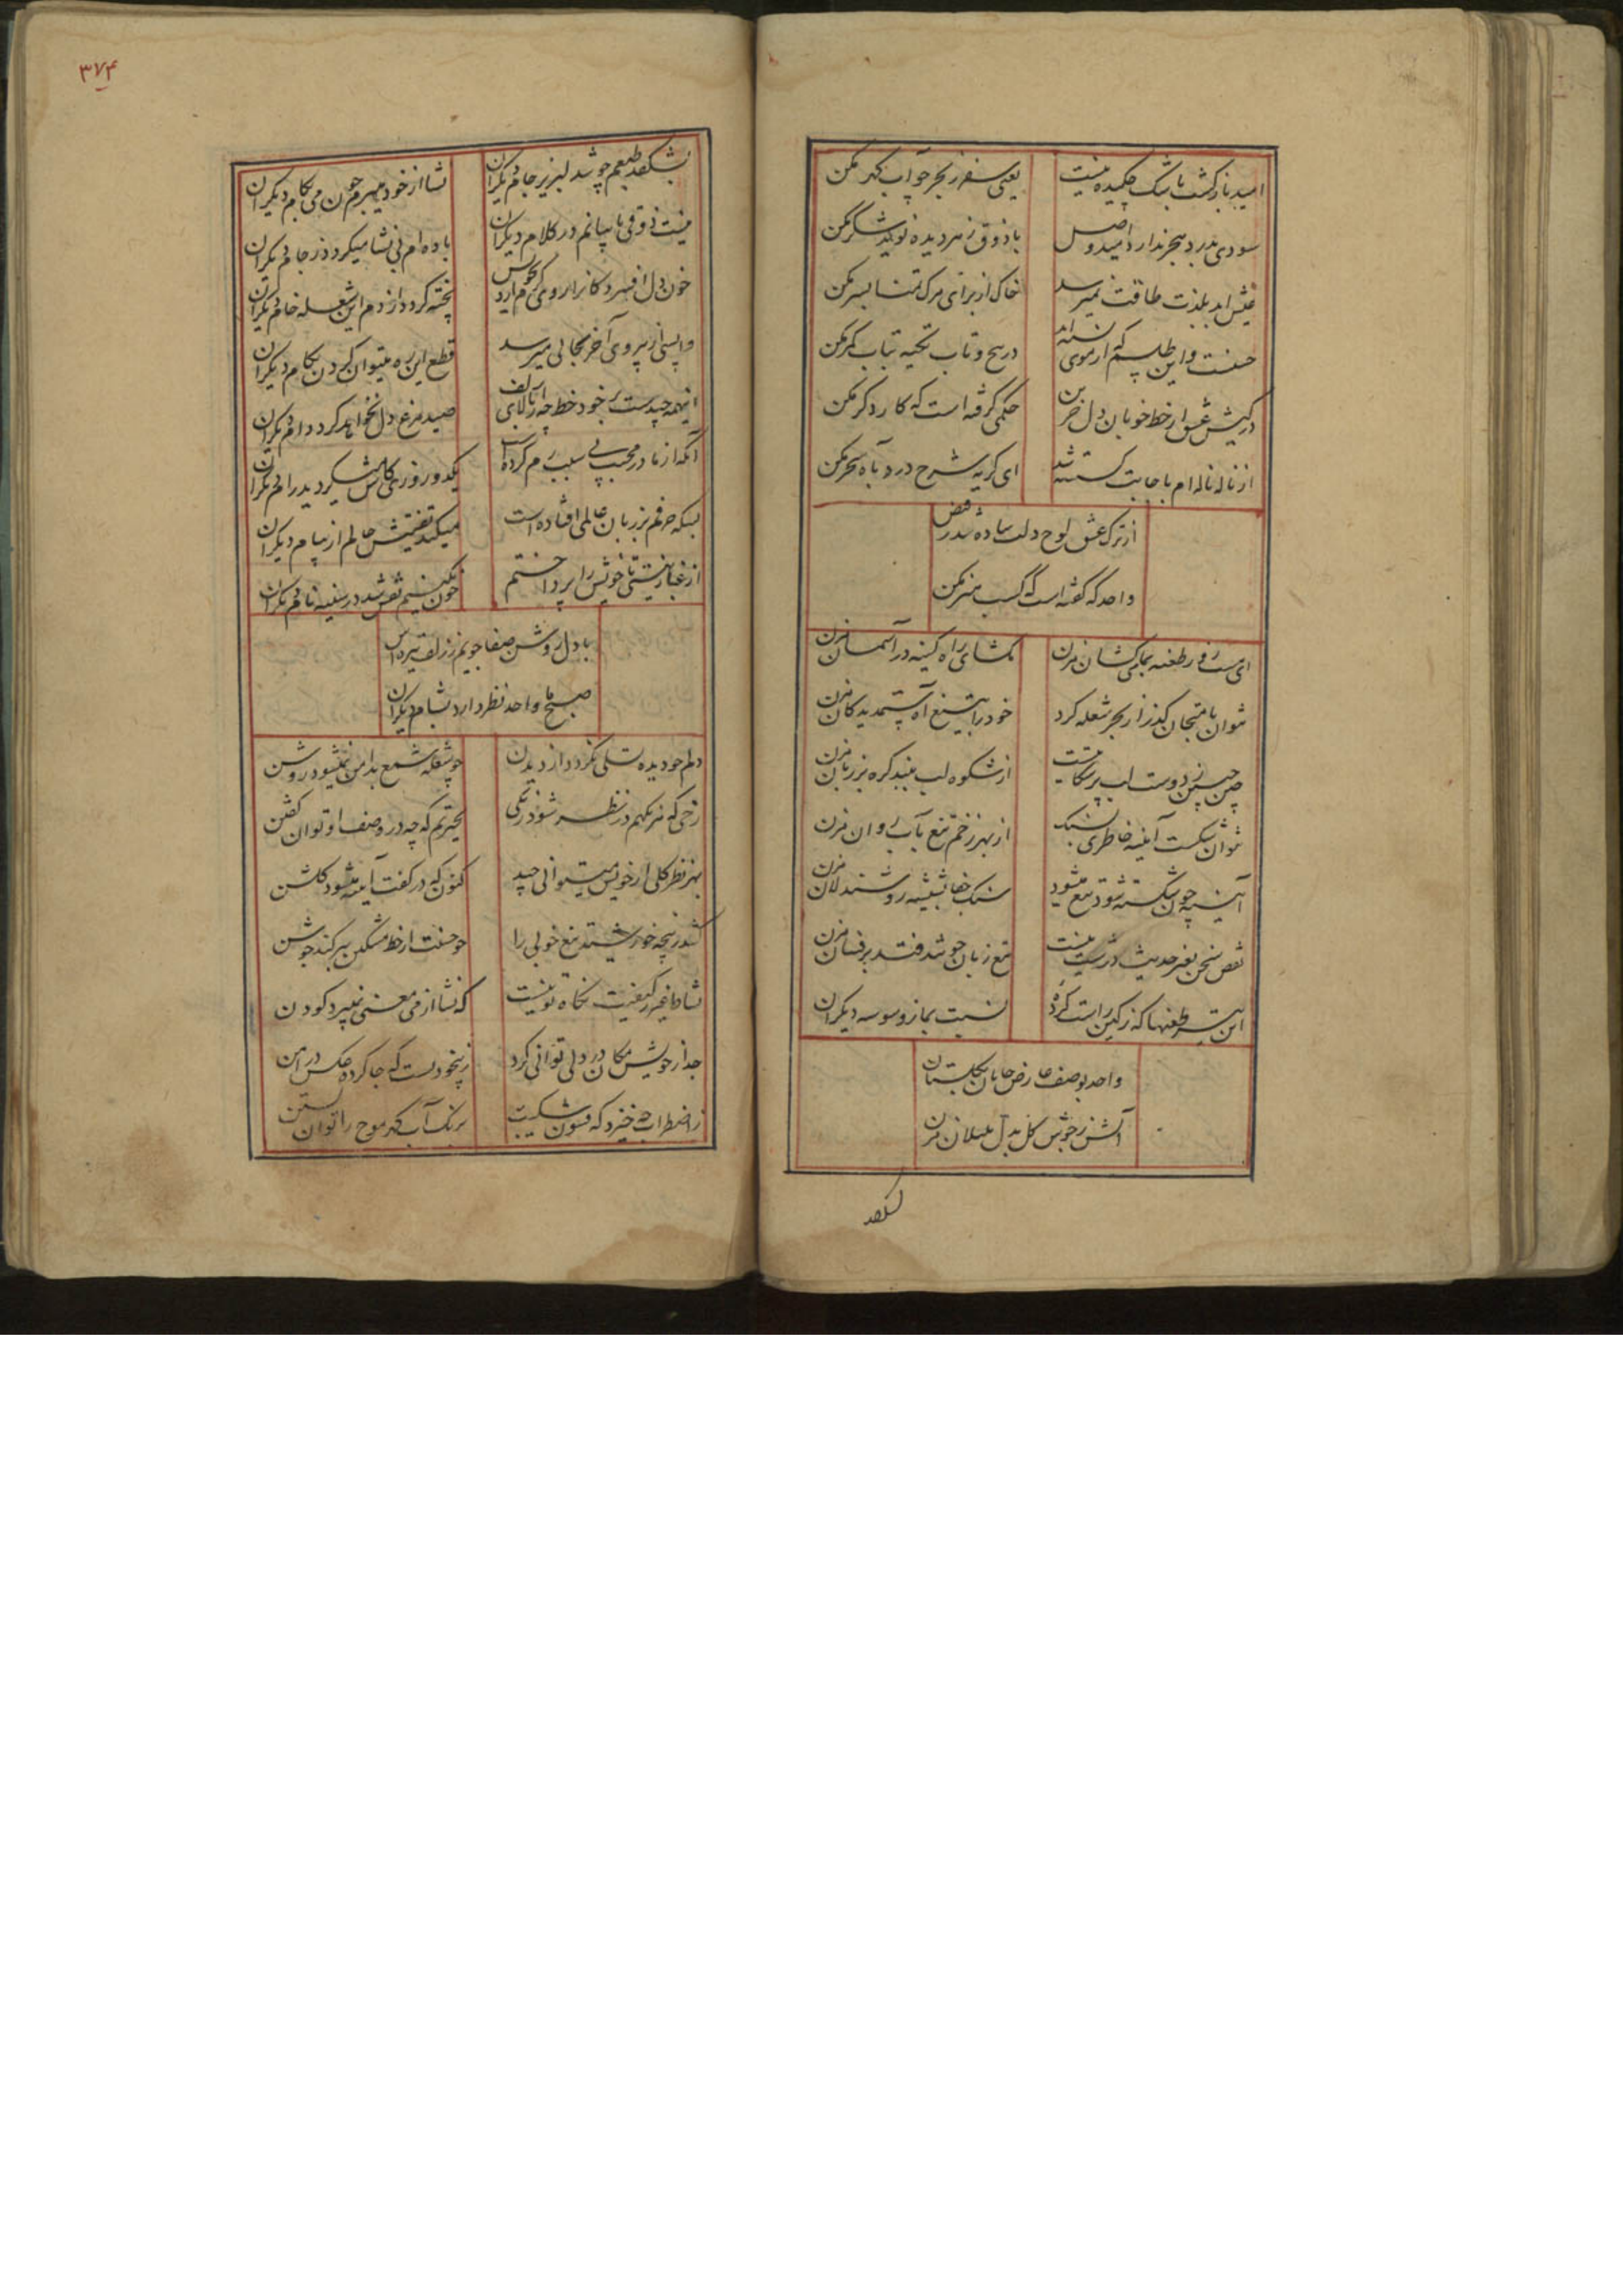 امید بازگشت باشک چکیده نیست
یعنی سفر ز بحر چو آب گهر مکن
سودی بدرد هجر ندارد امید وصل
با ذوق زهر دیده نوید شکر مکن
بلذت طاقت نمیرسد
خاک از برای مرک تمنا بسر مکن
حسنت و این طلسم که از موی
در پیچ و تاب تکیه بتاب کمر مکن
در کیش عشق از خط خوبان دل حزین
حکمی گرفته است که کا رد گر مکن
از ناله ناله ام باجابت
ای گریه شرح درد بآه سحر مکن
از ترک عشق لوح دلت ساده شد ز فیض
واحد که گفته است که کسب هنر مکن
ای در طعنه بما میکشان مزن
مکشای راه کینه در آسمان مزن
نتوان بامتحان گذر از بحر شعله کرد
خود را بتیغ آه ستمدیدگان مزن
چین جبین دوست لب پر شکایت
از شکوه لب ببند گره بر زبان مزن
نتوان شکست آینه خاطری بسنک
از بهر زخم تیغ بآب روان مزن
آیینه چون شکسته شود تیغ میشود
سنک جفا بشیشه روشندلان مزن
نقص سخن بغیر حدیث درشت نیست
تیغ زبان چو تند فتد بر فسان مزن
این طعنها که ز کین راست کرده
نسبت بما ز وسوسه دیگران مزن
واحد بوصف عارض جانان بگلستان
آتش ز جوش گل بدل بلبلان مزن
نشکفد
۳۷۴
نشکفد طبعم چو شد لبریز جام دیگران
نشا از خود میبرم چون می بکام دیگران
نیست ذوقی با بیانم در کلام دیگران
باده ام بی نشا میگردد ز جام دیگران
خون دل افسردکانرا
پخته گردد از دم این شعله خام دیگران
واپسی از پیروی آخر بجائی میرسد
قطع این ره میتوان کردن بگام دیگران
اینهمه چیدست بر خود خط چه از بالای زلف
صید مرغ دل نخواهد کرد دام دیگران
آنکه از ما در محبت بی سبب رم کرده است
یکدو روزی گردید رام دیگران
بسکه حرفم بر زبان عالمی افتاده است
میکند تفتیش حالم از پیام دیگران
از غبار نیستی تا خویش را پرداختم
چون نکین نقش شد در سینه نام دیگران
با دل روشن صفا جویم ز زلف تیره اش
صبح ما واحد نظر دارد بشام دیگران
دلم چو دیده تسلی نگردد از دیدن
چو شعله شمع بدامن نمیشود روشن
رخی که هر نکهم در نظر شود رنکی
بحیرتم که چه در وصف او توان گفتن
بهر نظر گلی از خویش میتوانی چید
کنون که در کفت آیینه میشود گلشن
کشد ز پنجه خورشید تیغ خوبی را
چو حسنت از خط مشکین ببر کند جوشن
نشاط غیر ز کیفیت نگاه تو نیست
که نشا از می معنی نمیبرد کودن
جدا ز خویش مکان در دلی توانی کرد
ز بیخودیست که جا کرده عکس در
ز اضطراب چه خیزد که فسون
برنک آب گهر موج را توان بستن